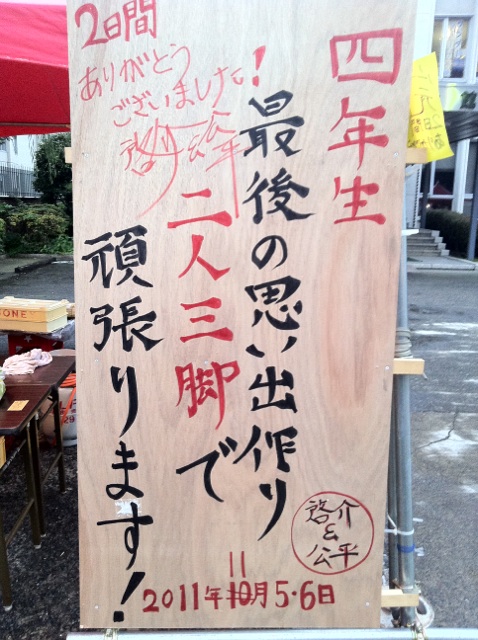 四年生
最後の思い出作り
二人三脚で
頑張ります!
啓介
&
公平
11
2011年10月5・6日
2日間
ありがとう
ございました!
啓介&公平
ONE